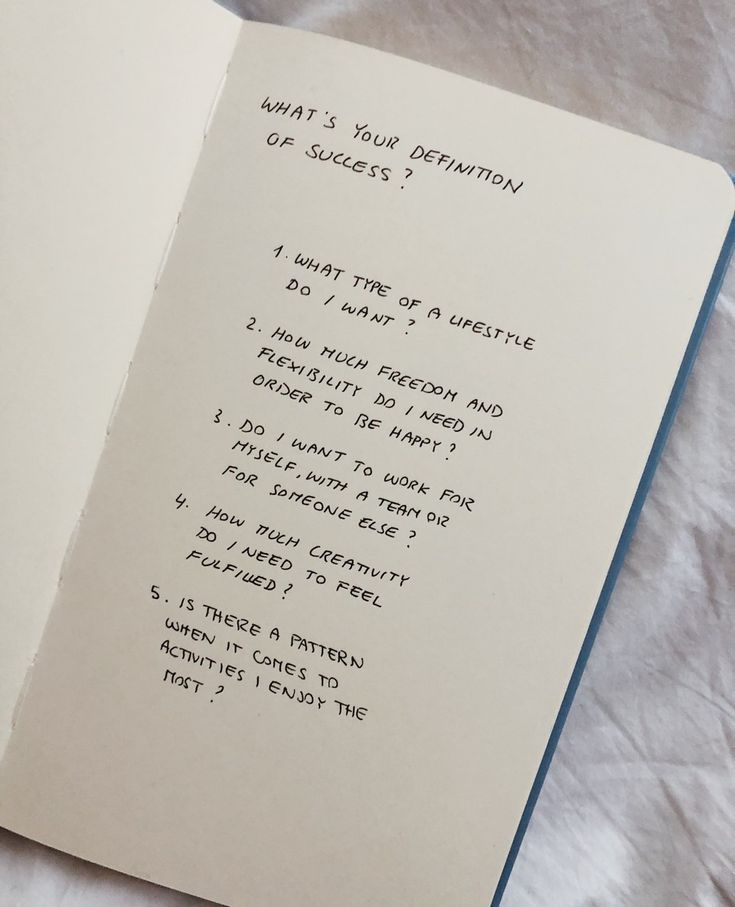 WHAT'S YOUR DEFINITION
OF SUCCESS?
1. WHAT TYPE OF A LIFESTYLE
DO I WANT?
2. HOW MUCH FREEDOM AND
FLEXIBILITY DO I NEED IN
ORDER TO BE HAPPY?
3. DO I WANT TO WORK FOR
MYSELF, WITH A TEAM OR
FOR SOMEONE ELSE?
4. HOW MUCH CREATIVITY
DO I NEED TO FEEL
FULFILLED?
5. IS THERE A PATTERN
WHEN IT COMES TO
ACTIVITIES I ENJOY THE
MOST?